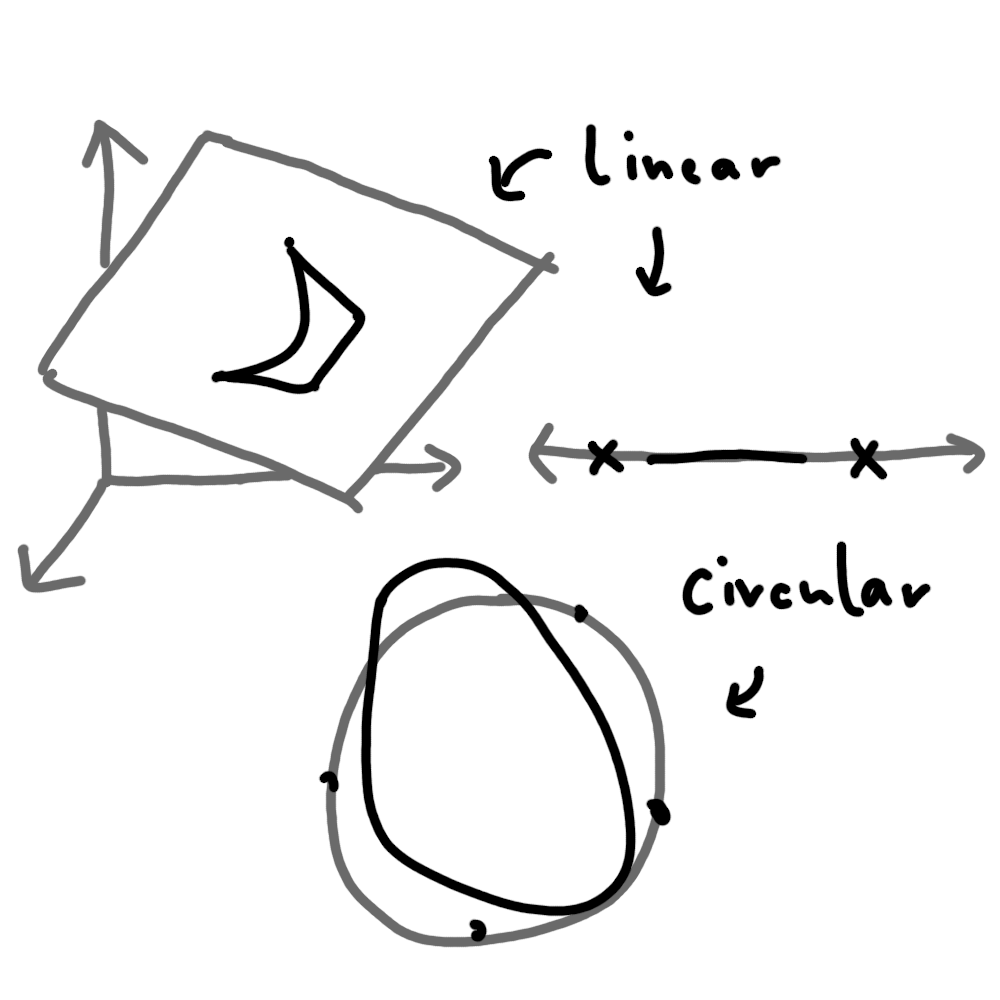 linear
circular